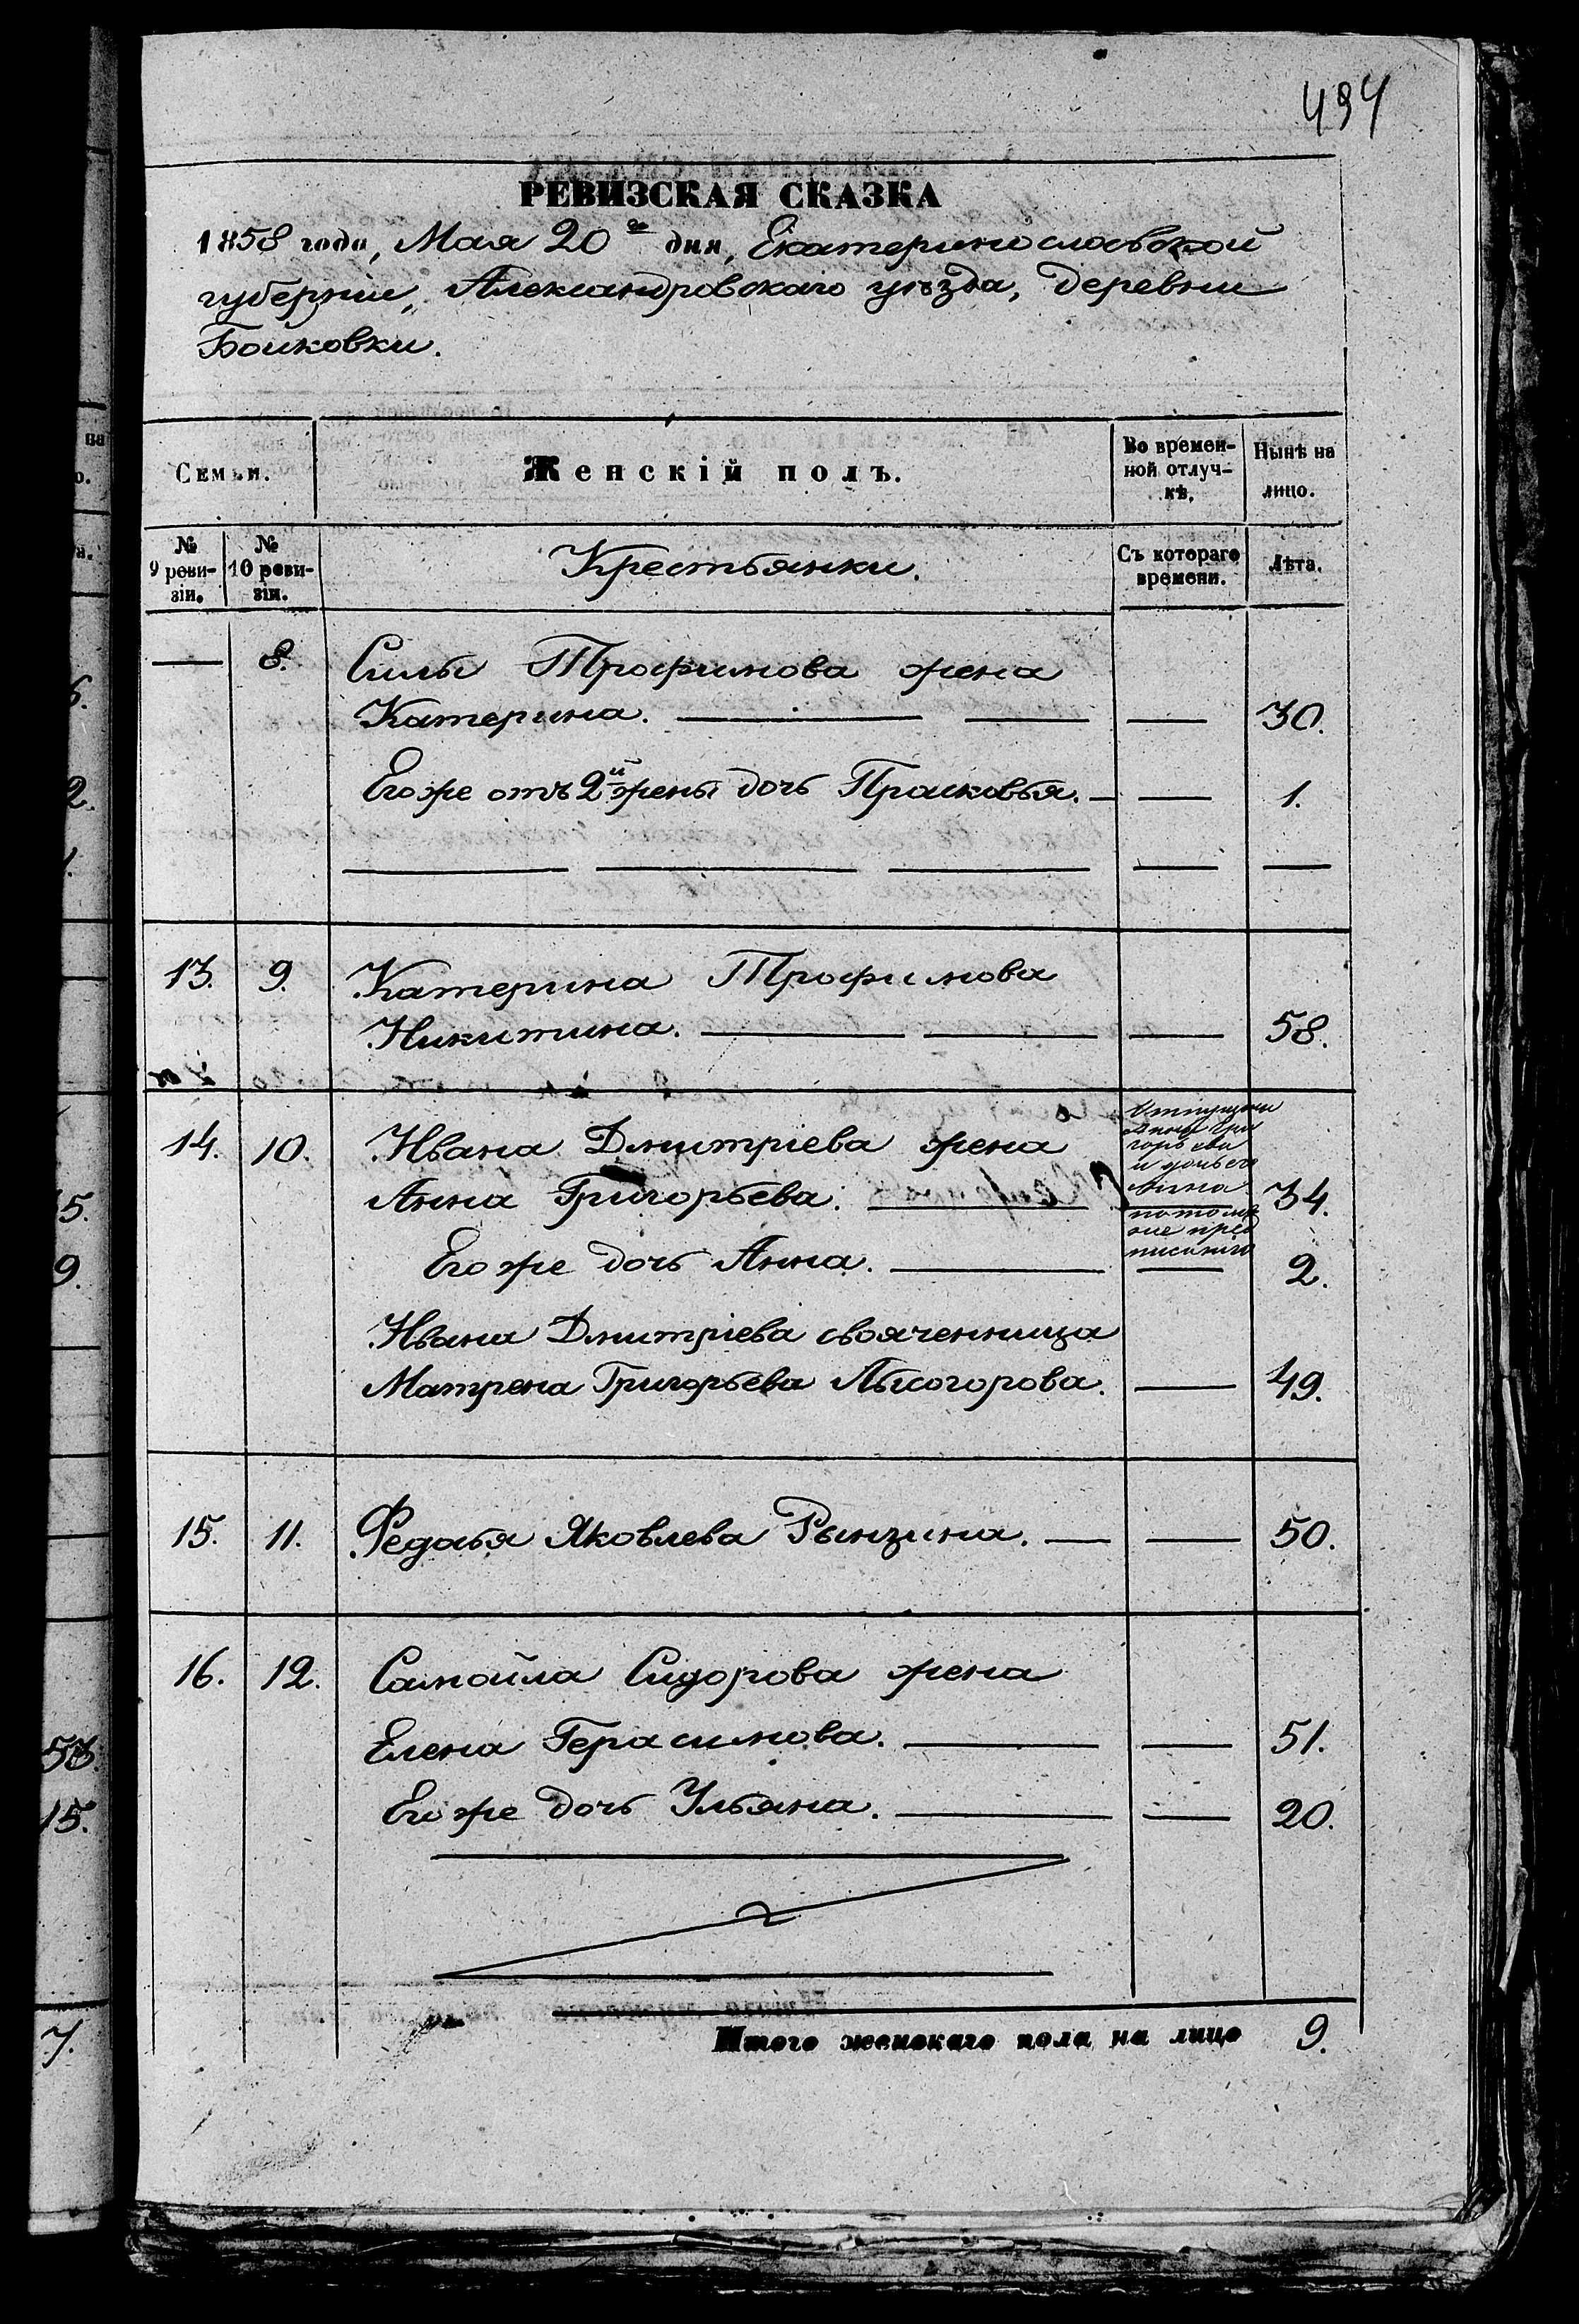 494
РЕВИЗСКАЯ СКАЗКА
1858 года, Мая 20го дня, Екатеринославской
губерніи, Александровскаго уѣзда, деревни
Бойковки.
Семьи.
Женскій полъ.
Во времен-
ной отлуч-
кѣ.
Нынѣ на
лицо.
№
9 реви-
зіи.
№
10 реви-
зіи.
Крестьянки.
Съ котораго
времени.
Лѣта.
— 8. Силы Трофимова жена
Катерина. — — 30.
Его же отъ 2й жены дочь Прасковья. — — 1.
13. 9. Катерина Трофимова
Никитина. — — 58.
14. 10. Ивана Дмитріева жена
Анна Григорьева. — 34.
Отпущены
Анна Гри
горьева
и дочь его
Анна
Его же дочь Анна. — — 2.
Ивана Дмитріева свояченница
Матрена Григорьева Лысогорова. — 49.
15. 11. Федосья Яковлева Рынзина. — — 50.
16. 12. Самойла Сидорова жена
Елена Герасимова. — — 51.
Его же дочь Ульяна. — — 20.
Итого женскаго пола на лицо 9.